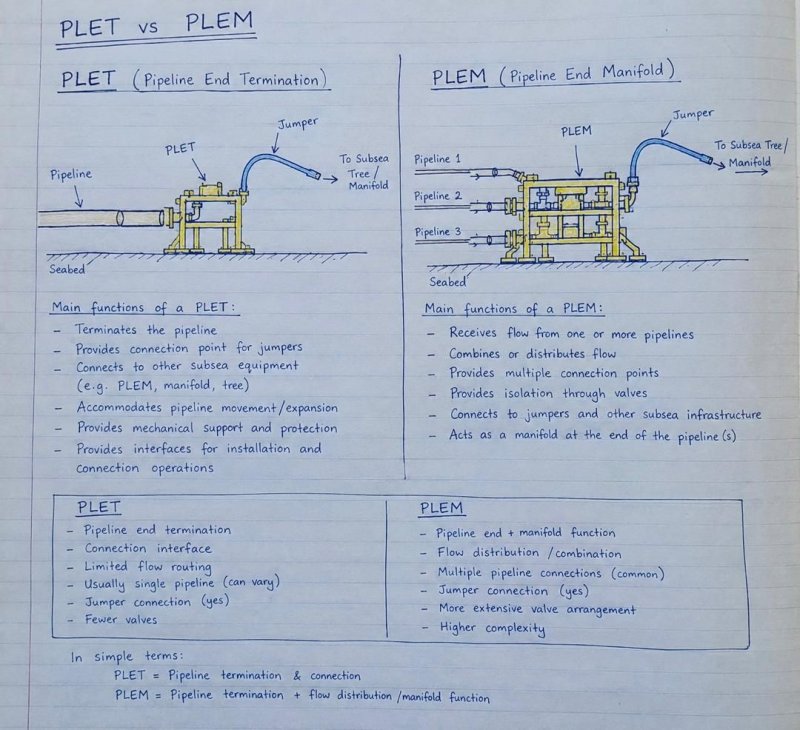 PLET vs PLEM
PLET (Pipeline End Termination)
Jumper
PLET
Pipeline
To Subsea
Tree/
Manifold
Seabed
Main functions of a PLET:
- Terminates the pipeline
- Provides connection point for jumpers
- Connects to other subsea equipment
(e.g. PLEM, manifold, tree)
- Accommodates pipeline movement/expansion
- Provides mechanical support and protection
- Provides interfaces for installation and
connection operations
PLEM (Pipeline End Manifold)
Jumper
PLEM
To Subsea Tree/
Manifold
Pipeline 1
Pipeline 2
Pipeline 3
Seabed
Main functions of a PLEM:
- Receives flow from one or more pipelines
- Combines or distributes flow
- Provides multiple connection points
- Provides isolation through valves
- Connects to jumpers and other subsea infrastructure
- Acts as a manifold at the end of the pipeline(s)
PLET
- Pipeline end termination
- Connection interface
- Limited flow routing
- Usually single pipeline (can vary)
- Jumper connection (yes)
- Fewer valves
PLEM
- Pipeline end + manifold function
- Flow distribution/combination
- Multiple pipeline connections (common)
- Jumper connection (yes)
- More extensive valve arrangement
- Higher complexity
In simple terms:
PLET = Pipeline termination & connection
PLEM = Pipeline termination + flow distribution/manifold function